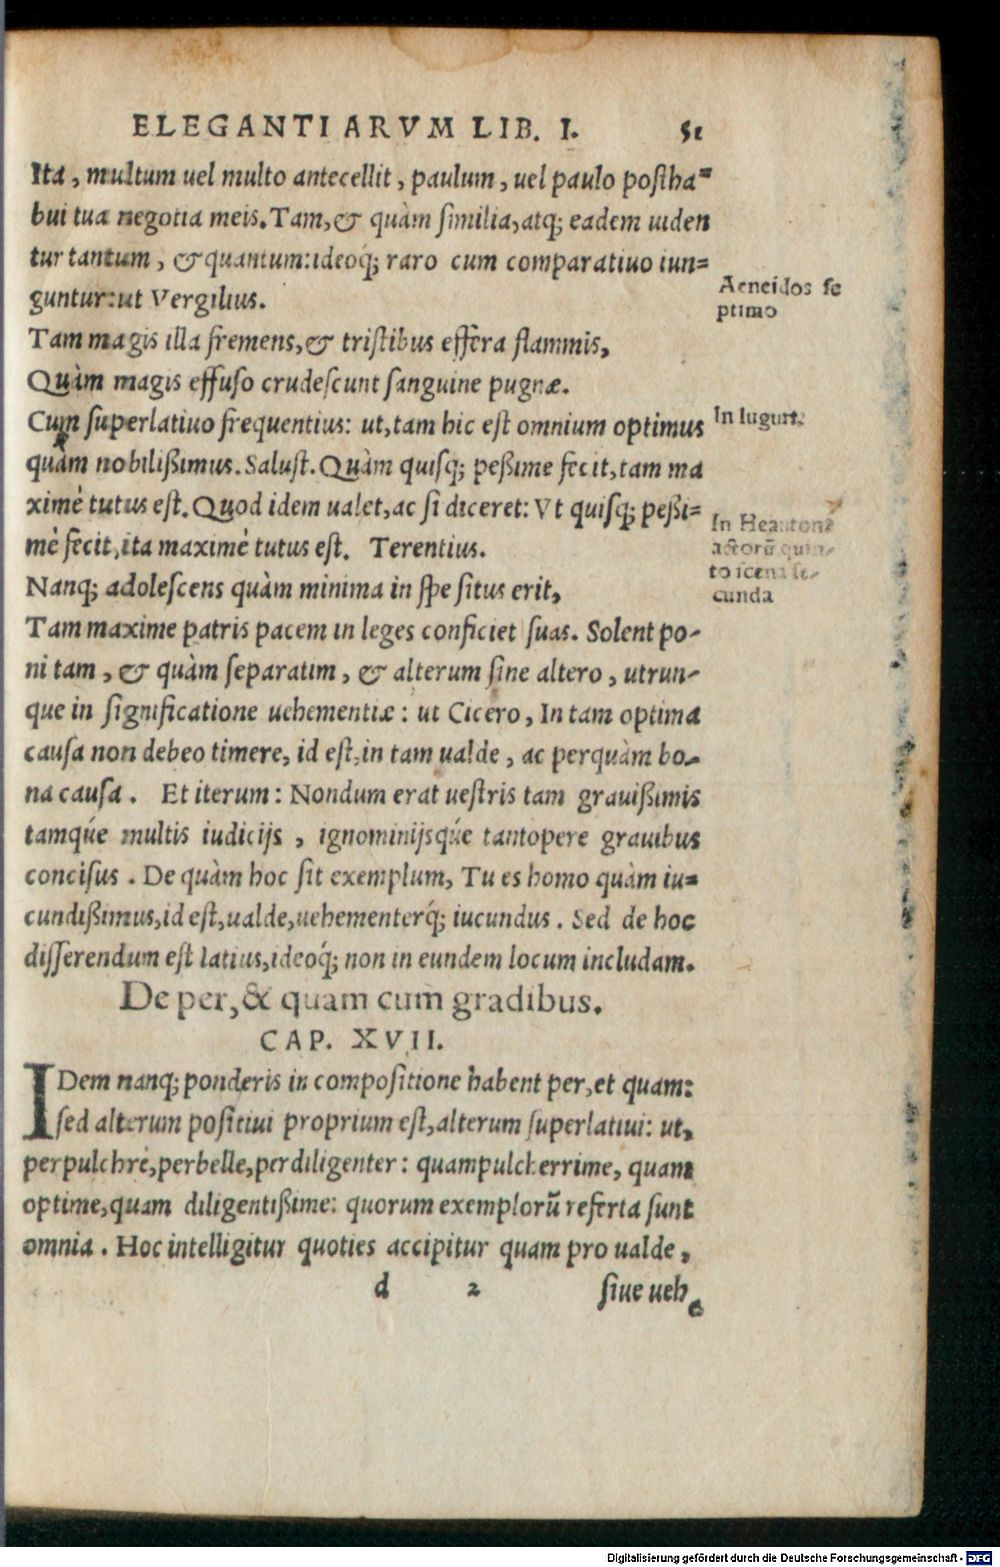 ELEGANTIARVM LIB. I. 51
Ita, multum uel multo antecellit, paulum, uel paulo postha=
bui tua negotia meis. Tam, & quàm similia, atq; eadem uiden
tur tantum, & quantum: ideoq́; raro cum comparatiuo iun=
guntur: ut Vergilius.
Aeneidos se
ptimo
Tam magis illa fremens, & tristibus effera flammis,
Quàm magis effuso crudescunt sanguine pugnæ.
Cum superlatiuo frequentius: ut, tam hic est omnium optimus
In Iugurt.
quàm nobilißimus. Salust. Quàm quisq; peßime fecit, tam ma
ximè tutus est. Quod idem ualet, ac si diceret: Vt quisq; peßi=
mè fecit, ita maximè tutus est. Terentius.
In Heautont
actorũ quin-
to scena se-
cunda
Nanq; adolescens quàm minima in spe situs erit,
Tam maxime patris pacem in leges conficiet suas. Solent po-
ni tam, & quàm separatim, & alterum sine altero, utrun-
que in significatione uehementiæ: ut Cicero, In tam optima
causa non debeo timere, id est, in tam ualde, ac perquàm bo-
na causa. Et iterum: Nondum erat uestris tam grauißimis
tamqúe multis iudicijs, ignominijsqúe tantopere grauibus
concisus. De quàm hoc sit exemplum, Tu es homo quàm iu=
cundißimus, id est, ualde, uehementerq́; iucundus. Sed de hoc
disserendum est latius, ideoq́; non in eundem locum includam.
De per, & quam cum gradibus.
CAP. XVII.
IDem nanq; ponderis in compositione habent per, et quam:
sed alterum positiui proprium est, alterum superlatiui: ut,
perpulchrè, perbelle, perdiligenter: quampulcherrime, quam
optime, quam diligentißime: quorum exemplorũ referta sunt
omnia. Hoc intelligitur quoties accipitur quam pro ualde,
d 2 siue ueh
e
Digitalisierung gefördert durch die Deutsche Forschungsgemeinschaft - DFG